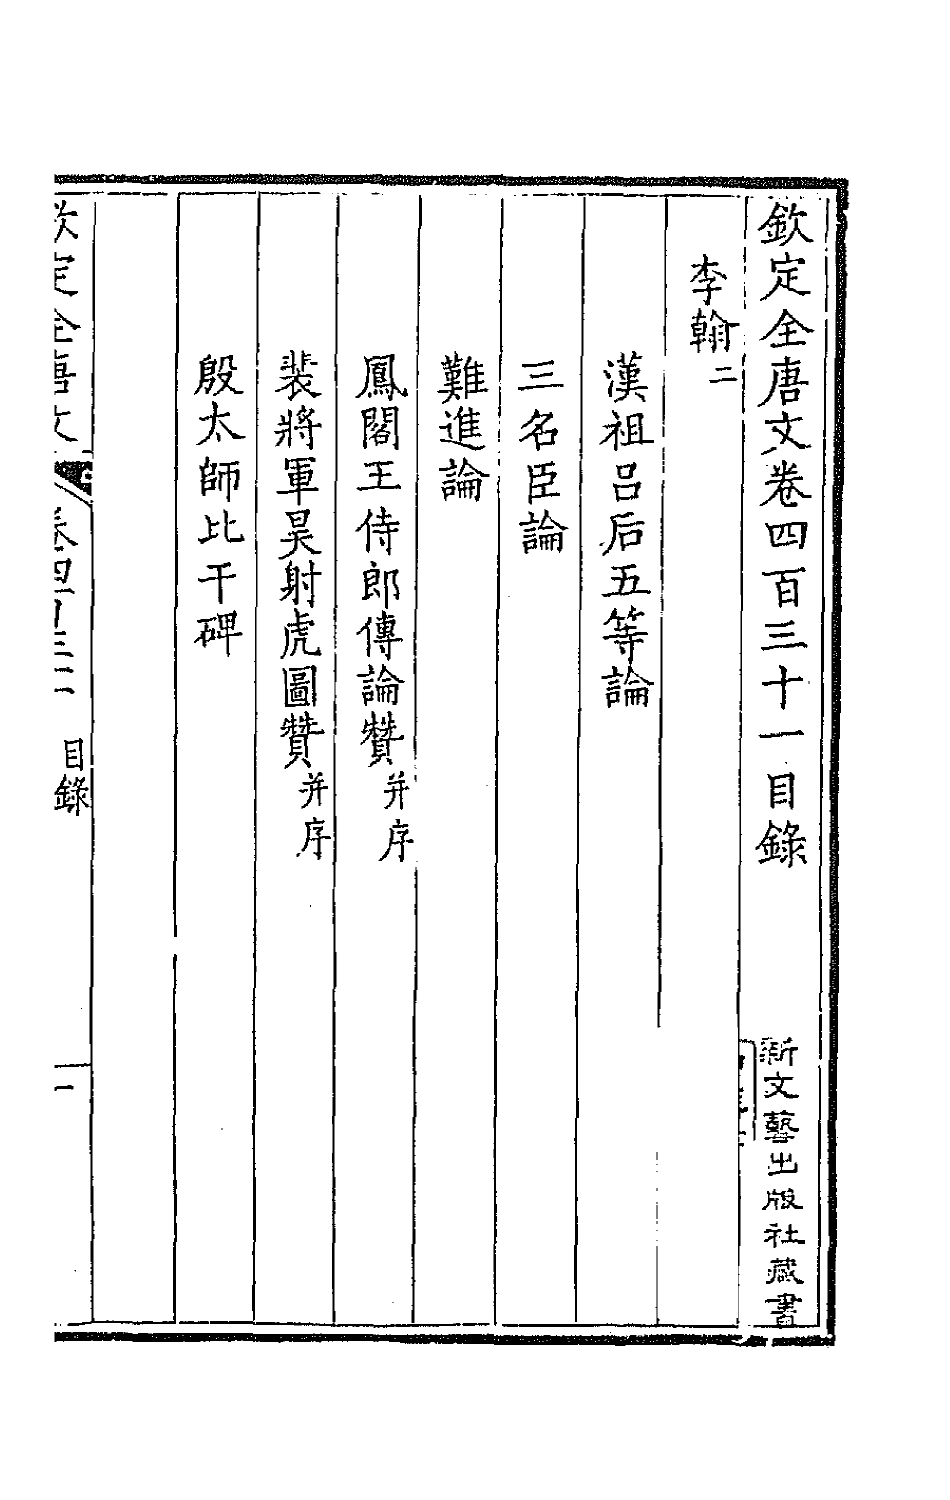 欽定全唐文卷四百三十一目錄
新文藝出版社藏書
李翰二
漢祖呂后五等論
三名臣論
難進論
鳳閣王侍郎傳論贊并序
裴將軍昊射虎圖贊并序
殷太師比干碑
欽定全唐文 卷四百三十一 目錄 一